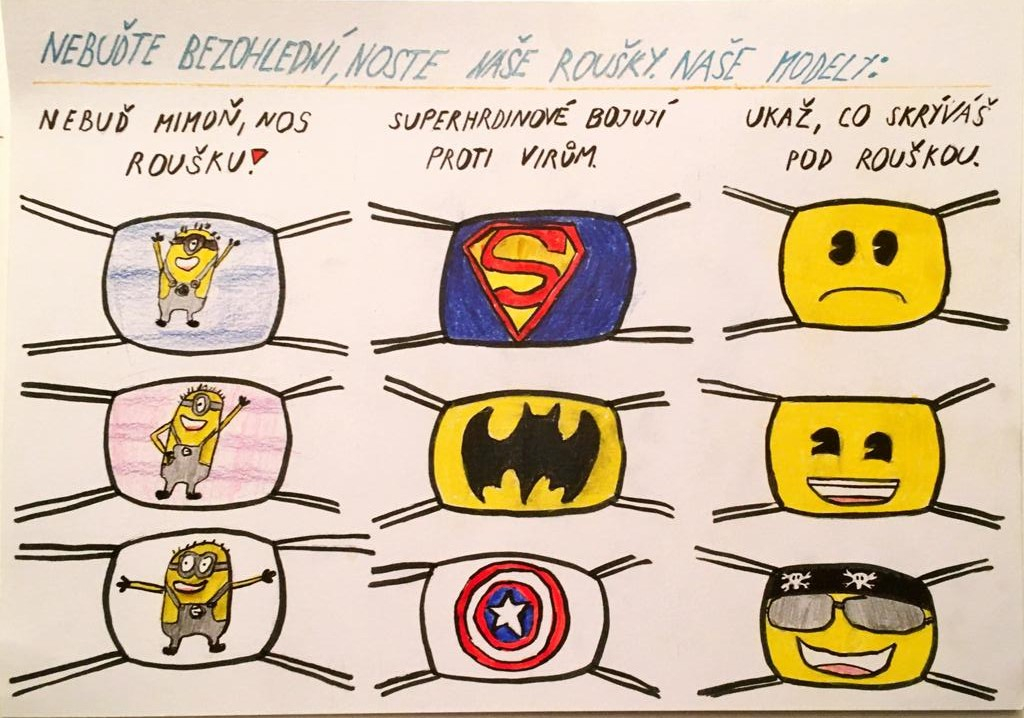 NEBUĎTE BEZOHLEDNÍ, NOSTE NAŠE ROUŠKY. NAŠE MODELY:
NEBUĎ MIMOŇ, NOS
ROUŠKU!
SUPERHRDINOVÉ BOJUJÍ
PROTI VIRŮM.
UKAŽ, CO SKRÝVÁŠ
POD ROUŠKOU.
S